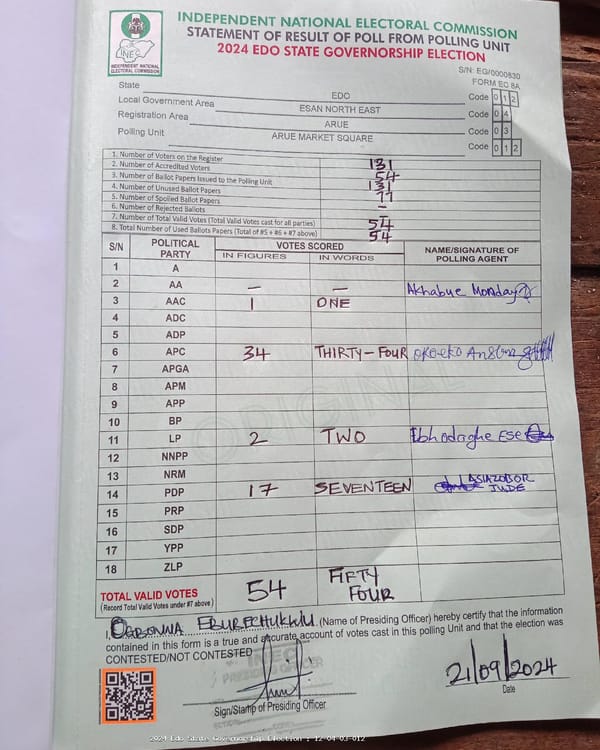 INDEPENDENT NATIONAL ELECTORAL COMMISSION
STATEMENT OF RESULT OF POLL FROM POLLING UNIT
2024 EDO STATE GOVERNORSHIP ELECTION
INEC
INDEPENDENT NATIONAL
ELECTORAL COMMISSION
S/N: EG/0000830
FORM EC 8A
State EDO Code 0 1 2
Local Government Area ESAN NORTH EAST Code 0 4
Registration Area ARUE Code 0 3
Polling Unit ARUE MARKET SQUARE Code 0 1 2
1. Number of Voters on the Register 131
2. Number of Accredited Voters 54
3. Number of Ballot Papers Issued to the Polling Unit 131
4. Number of Unused Ballot Papers 77
5. Number of Spoiled Ballot Papers -
6. Number of Rejected Ballots -
7. Number of Total Valid Votes (Total Valid Votes cast for all parties) 54
8. Total Number of Used Ballots Papers (Total of #5 + #6 + #7 above) 54
S/N POLITICAL PARTY VOTES SCORED NAME/SIGNATURE OF POLLING AGENT
IN FIGURES IN WORDS
1 A
2 AA - - Akhabue Monday
3 AAC 1 ONE
4 ADC
5 ADP
6 APC 34 THIRTY-FOUR
7 APGA
8 APM
9 APP
10 BP
11 LP 2 TWO Ese
12 NNPP
13 NRM
14 PDP 17 SEVENTEEN JUDE
15 PRP
16 SDP
17 YPP
18 ZLP
TOTAL VALID VOTES 54 FIFTY FOUR
(Record Total Valid Votes under #7 above)
I, OGBONNA EBUBECHUKWU (Name of Presiding Officer) hereby certify that the information
contained in this form is a true and accurate account of votes cast in this polling Unit and that the election was
CONTESTED/NOT CONTESTED
INEC
PRESIDING OFFICER
21/09/2024
Sign/Stamp of Presiding Officer
Date
ORIGINAL
2024 Edo State Governorship Election : 12-04-03-012